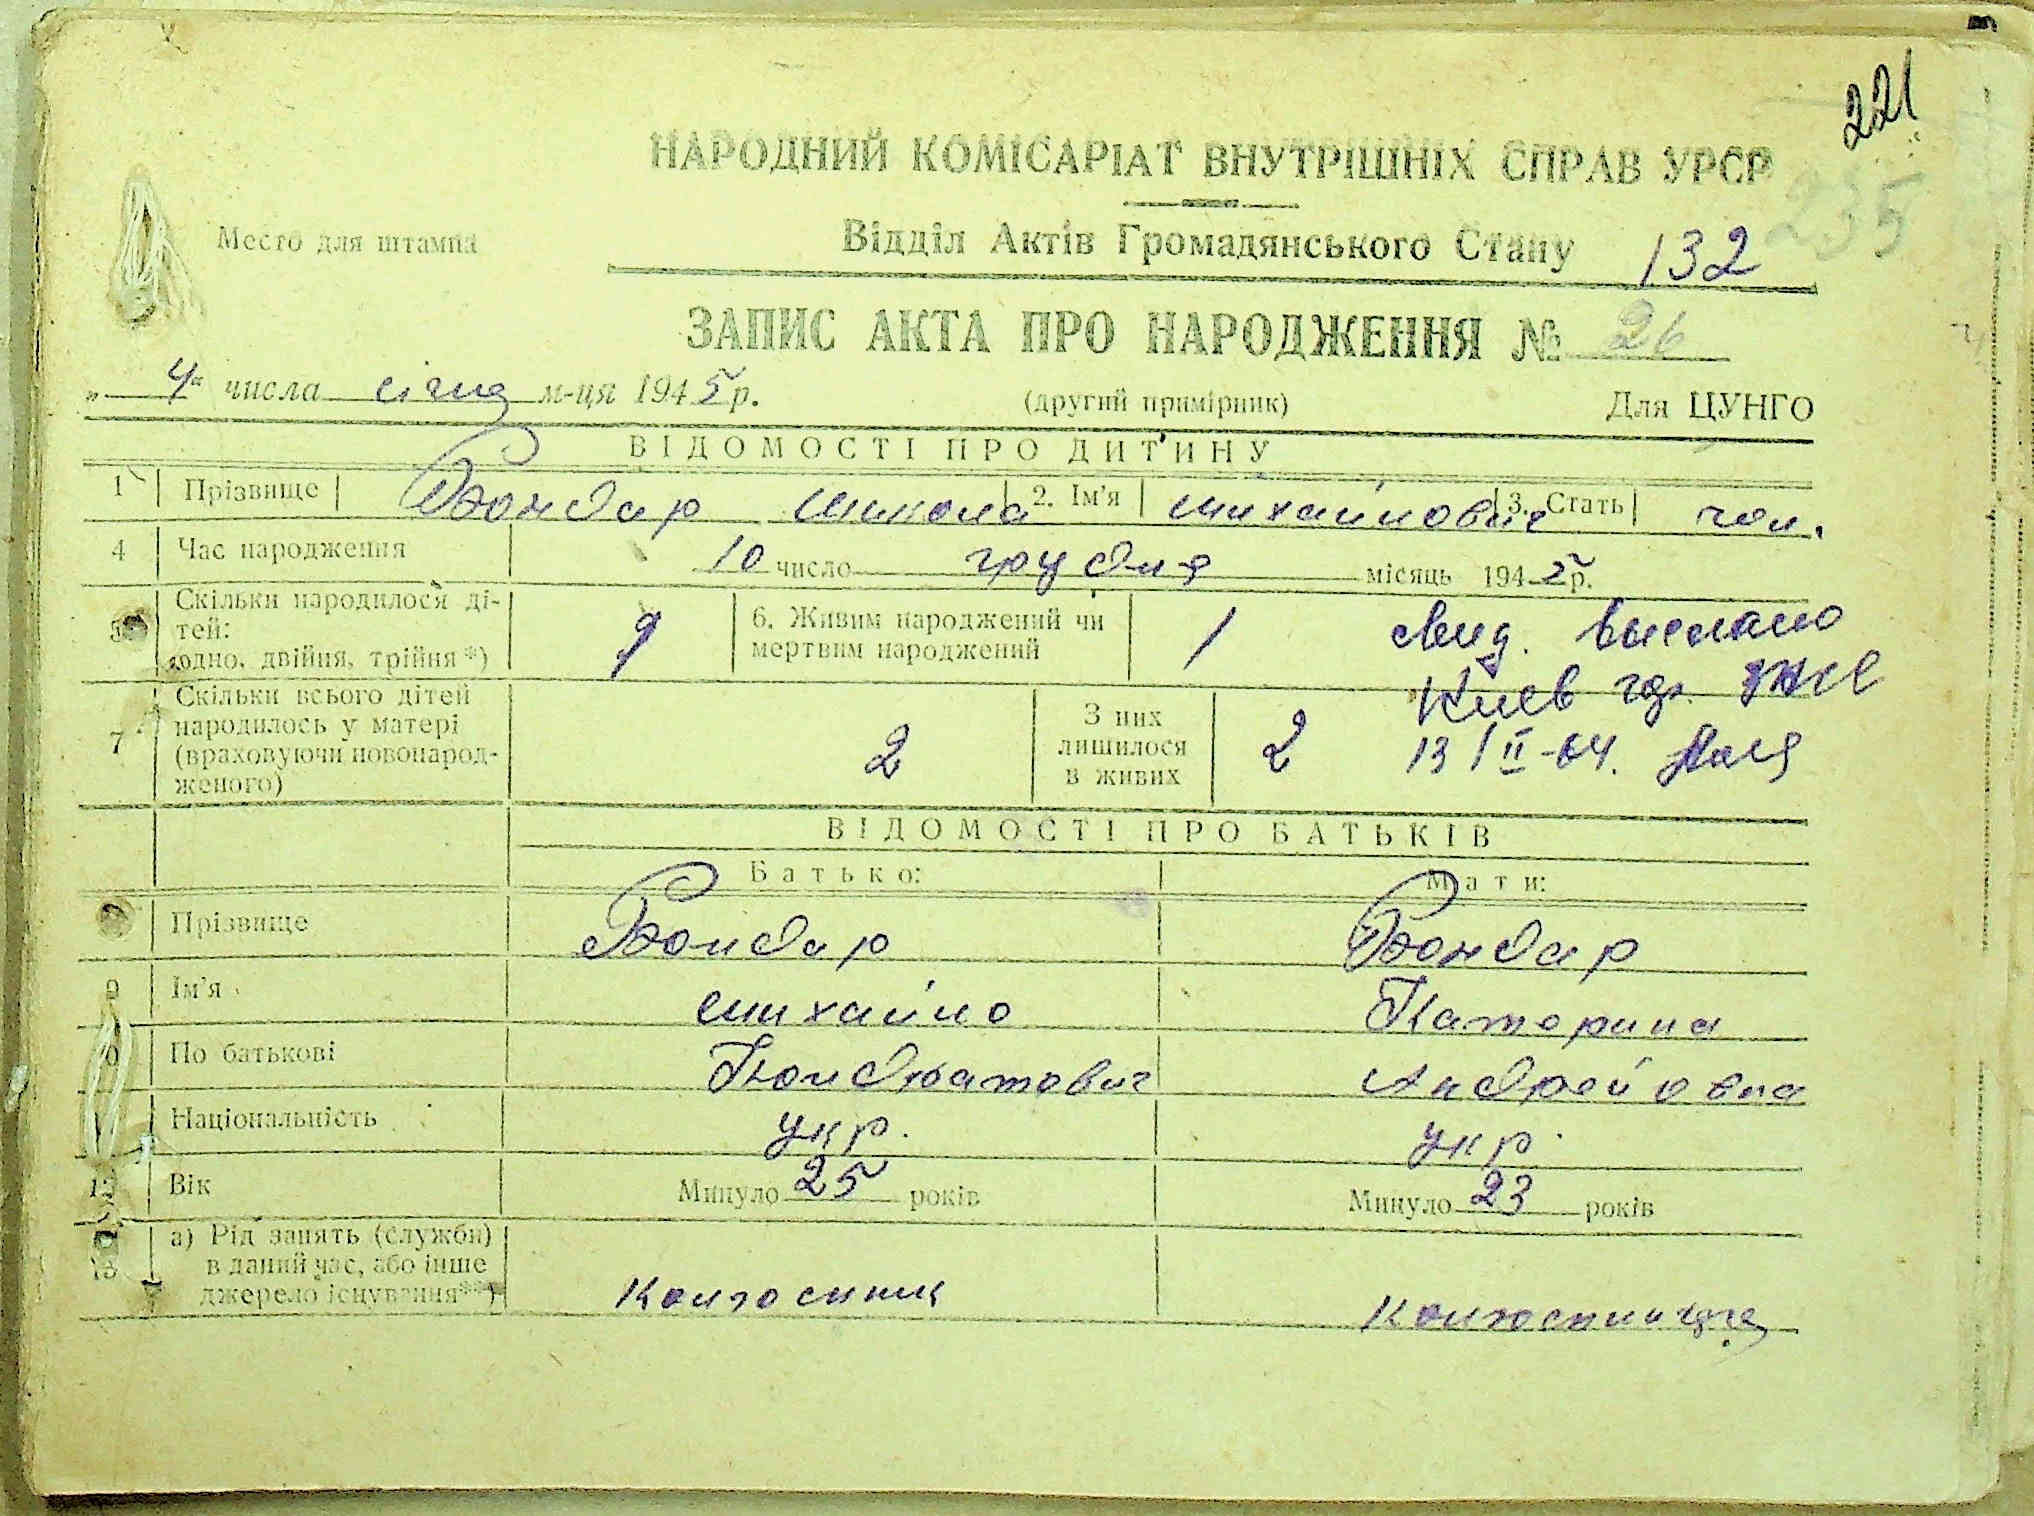 221
235
НАРОДНИЙ КОМІСАРІАТ ВНУТРІШНІХ СПРАВ УРСР
Место для штампа
Відділ Актів Громадянського Стану 132
ЗАПИС АКТА ПРО НАРОДЖЕННЯ № 26
„ 4 “ числа січня м-ця 1945 р. (другий примірник) Для ЦУНГО
ВІДОМОСТІ ПРО ДИТИНУ
1 Прізвище Бондар Микола 2. Ім'я Михайлович 3. Стать чол.
4 Час народження 10 число грудня місяць 1945 р.
5 Скільки народилося ді-
тей:
(одно, двійня, трійня*) 1 6. Живим народжений чи
мертвим народжений 1
Свид. выслано
Киев гор.
13/II-64.
7 Скільки всього дітей
народилось у матері
(враховуючи новонарод-
женого) 2 З них
лишилося
в живих 2
ВІДОМОСТІ ПРО БАТЬКІВ
Батько: Мати:
Прізвище Бондар Бондар
9 Ім'я Михайло Катерина
По батькові Кондратович Андрейовна
Національність укр. укр.
12 Вік Минуло 25 років Минуло 23 років
13 а) Рід занять (служби)
в даний час, або інше
джерело існування**) Колгоспник Колгоспниця